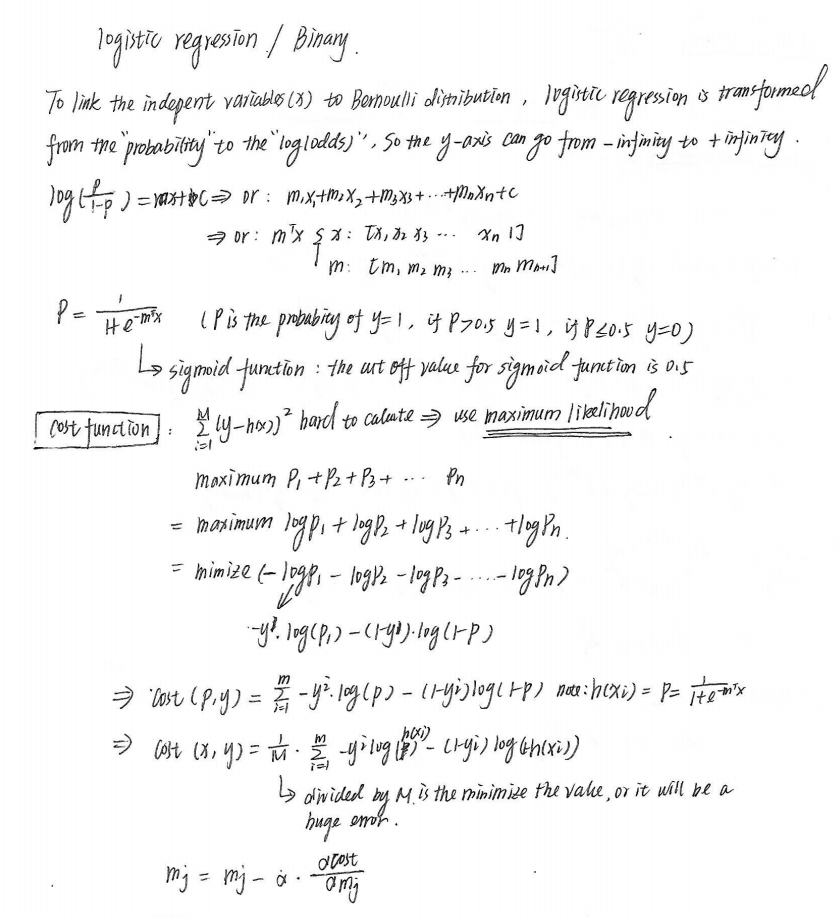 logistic regression / Binary.
To link the indepent variables(x) to Bernoulli distribution, logistic regression is transformed
from the "probability" to the "log(odds)", so the y-axis can go from -infinity to +infinity.
log(p/1-p) = mx+C ⇒ or: m₁x₁+m₂x₂+m₃x₃+...+mₙxₙ+c
⇒ or: mᵀx { x: [x₁ x₂ x₃ ... xₙ 1]
m: [m₁ m₂ m₃ ... mₙ mₙ₊₁]
P = 1/(1+e^-mᵀx) (P is the probabity of y=1, if P>0.5 y=1, if P≤0.5 y=0)
↳ sigmoid function: the cut off value for sigmoid function is 0.5
cost function: Σ_{i=1}^{M} (y-h(x))² hard to calcute ⇒ use maximum likelihood
maximum P₁+P₂+P₃+ ... Pn
= maximum logP₁ + logP₂ + logP₃ + ... + logPn.
= mimize (-logP₁ - logP₂ - logP₃ - ... - logPn)
-y¹·log(P₁) - (1-y¹)·log(1-P)
⇒ cost (P,y) = Σ_{i=1}^{m} -yⁱ·log(p) - (1-yⁱ)log(1-P) note: h(xi) = P = 1/(1+e^-mᵀx)
⇒ cost (x, y) = 1/M · Σ_{i=1}^{m} -yⁱ log(h(xi)) - (1-yi) log(1-h(xi))
↳ divided by M is the minimize the value, or it will be a
huge error.
mj = mj - α · αcost/αmj